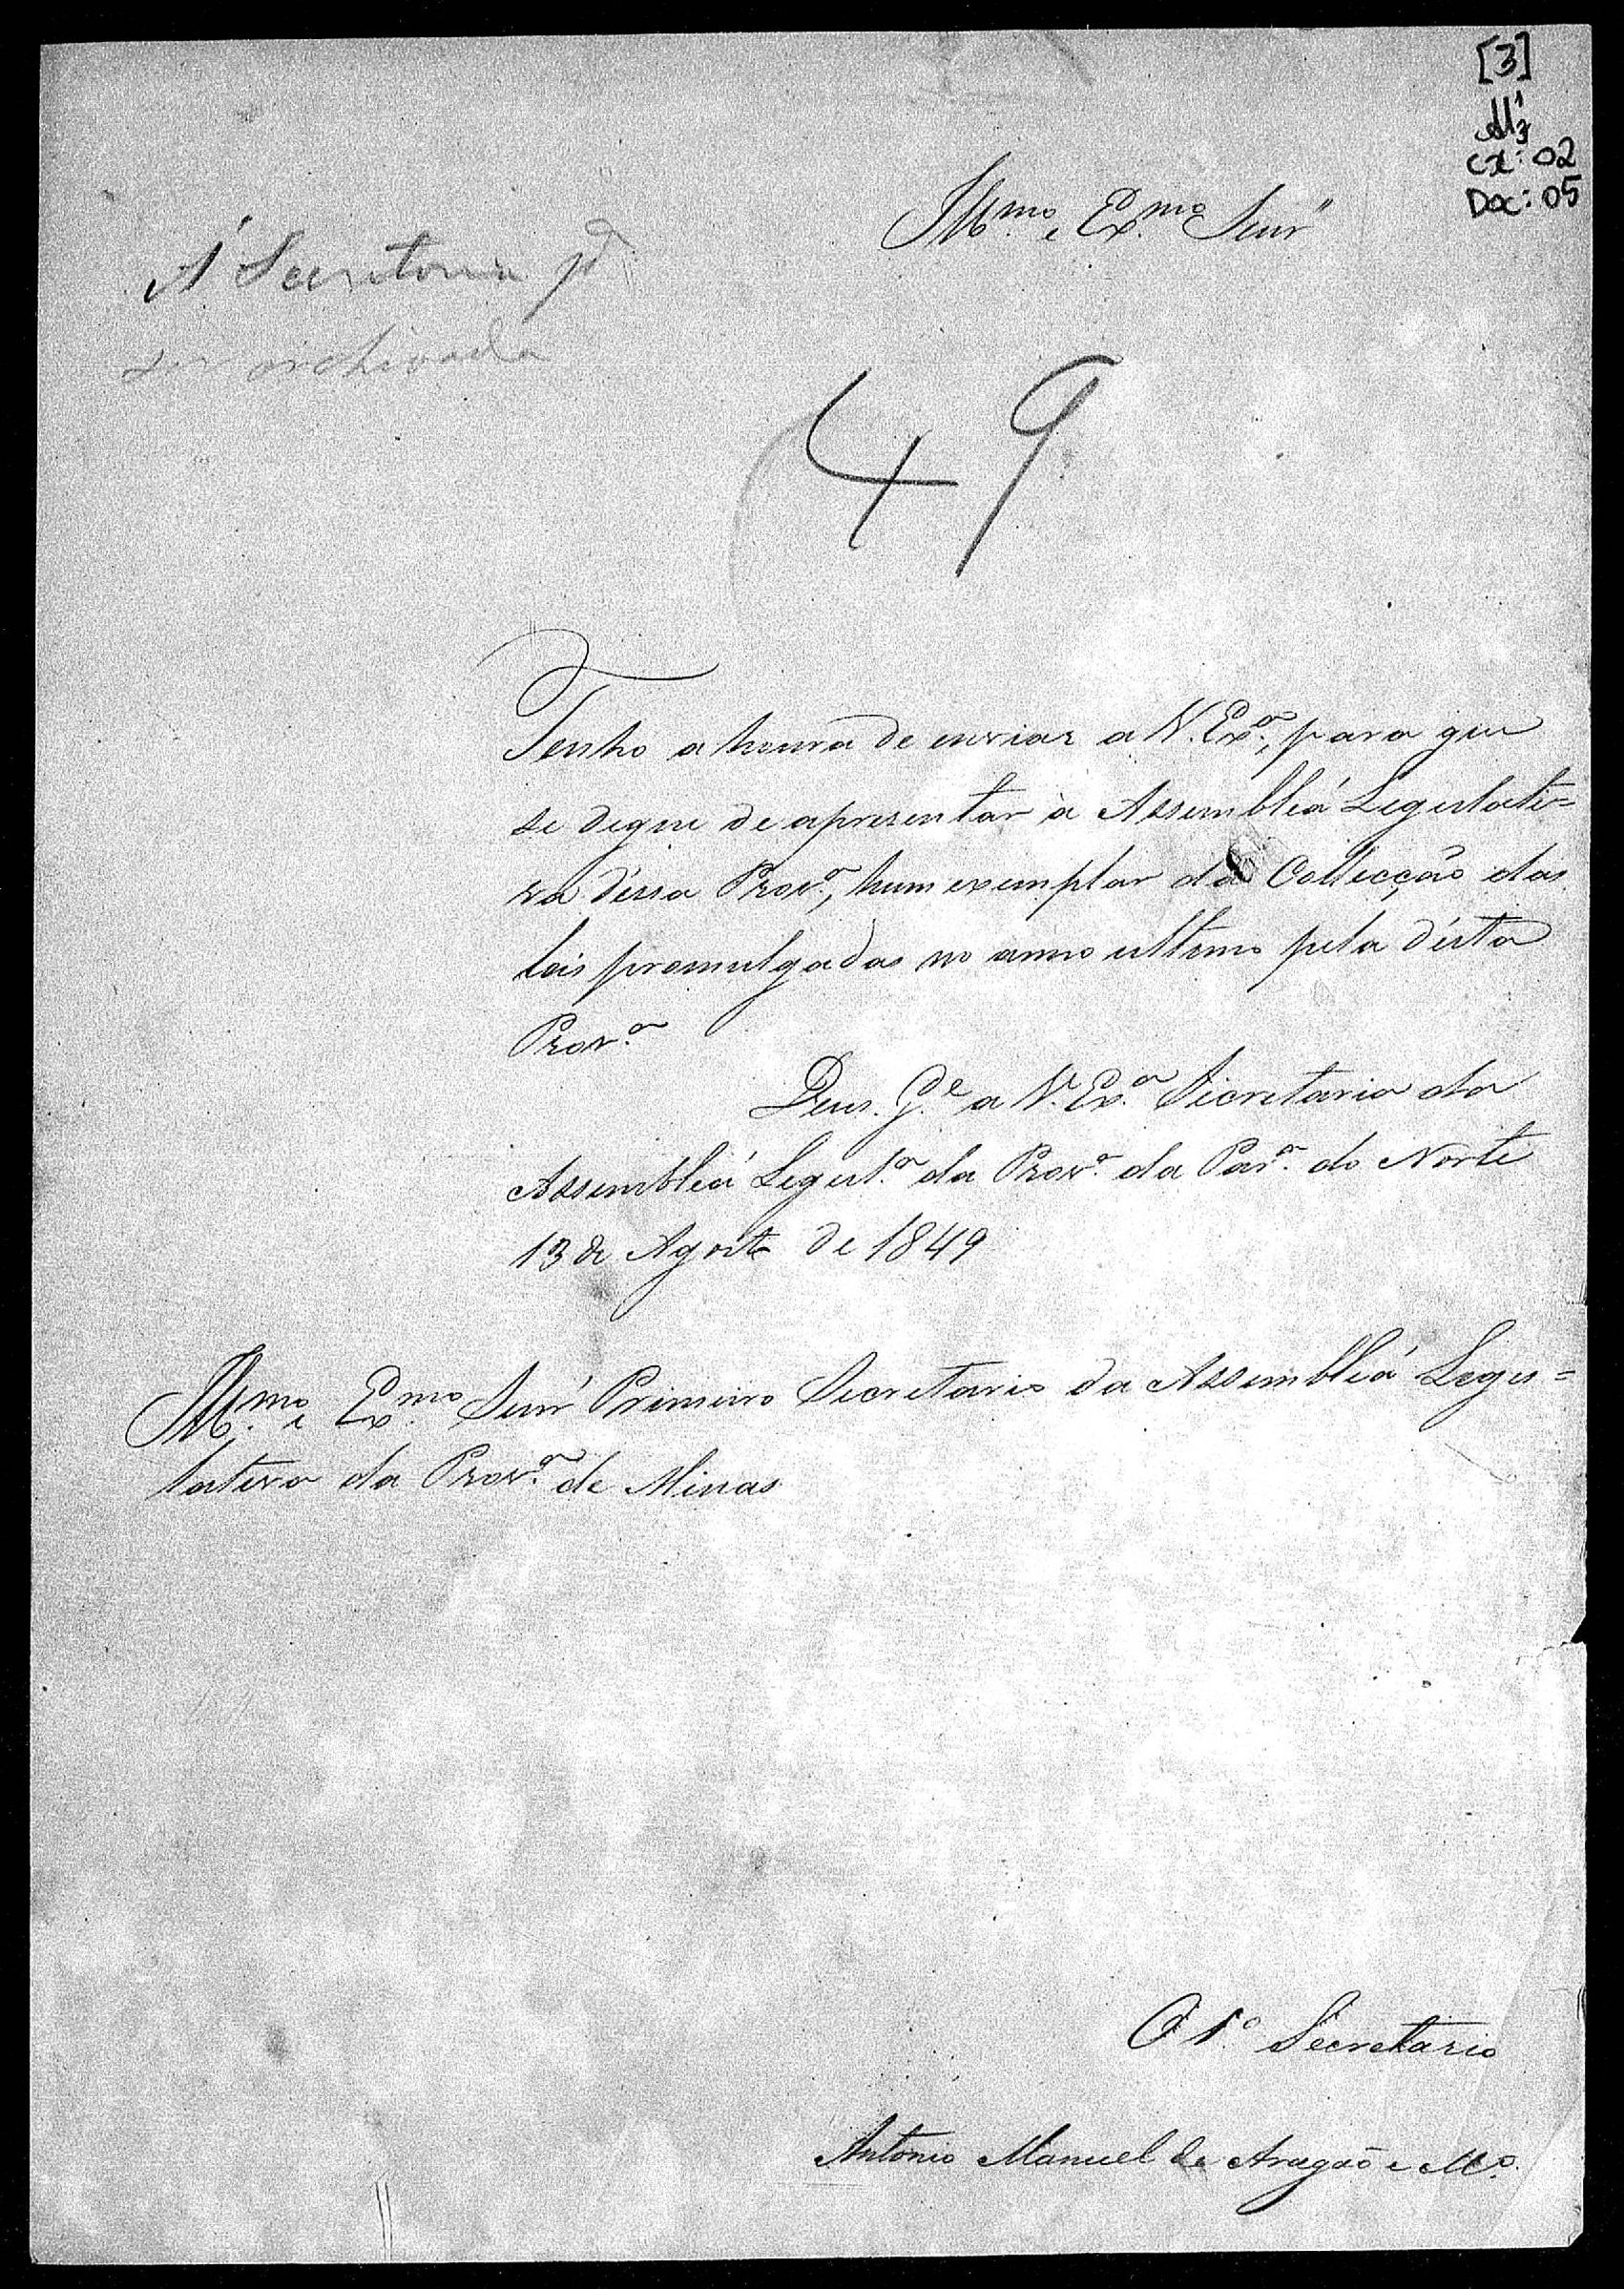 [3]
cx: 02
Doc: 05
Illmo. e Exmo. Senr.
Á Secretaria pa.
ser archivada
49
Tenho a honra de enviar a V. Exa., para que
se digne de apresentar à Assembléa Legislati=
va dessa Prova., hum exemplar da Collecção das
leis promulgadas no anno ultimo pela d'esta
Prova.
Deus Ge. a V. Exa. Secretaria da
Assembléa Legisla. da Prova. da Para. do Norte
13 de Agosto de 1849
Illmo. e Exmo. Senr. Primeiro Secretario da Assembléa Legis=
lativa da Prova. de Minas
O 1º Secretario
Antonio Manuel de Aragão e Mo.